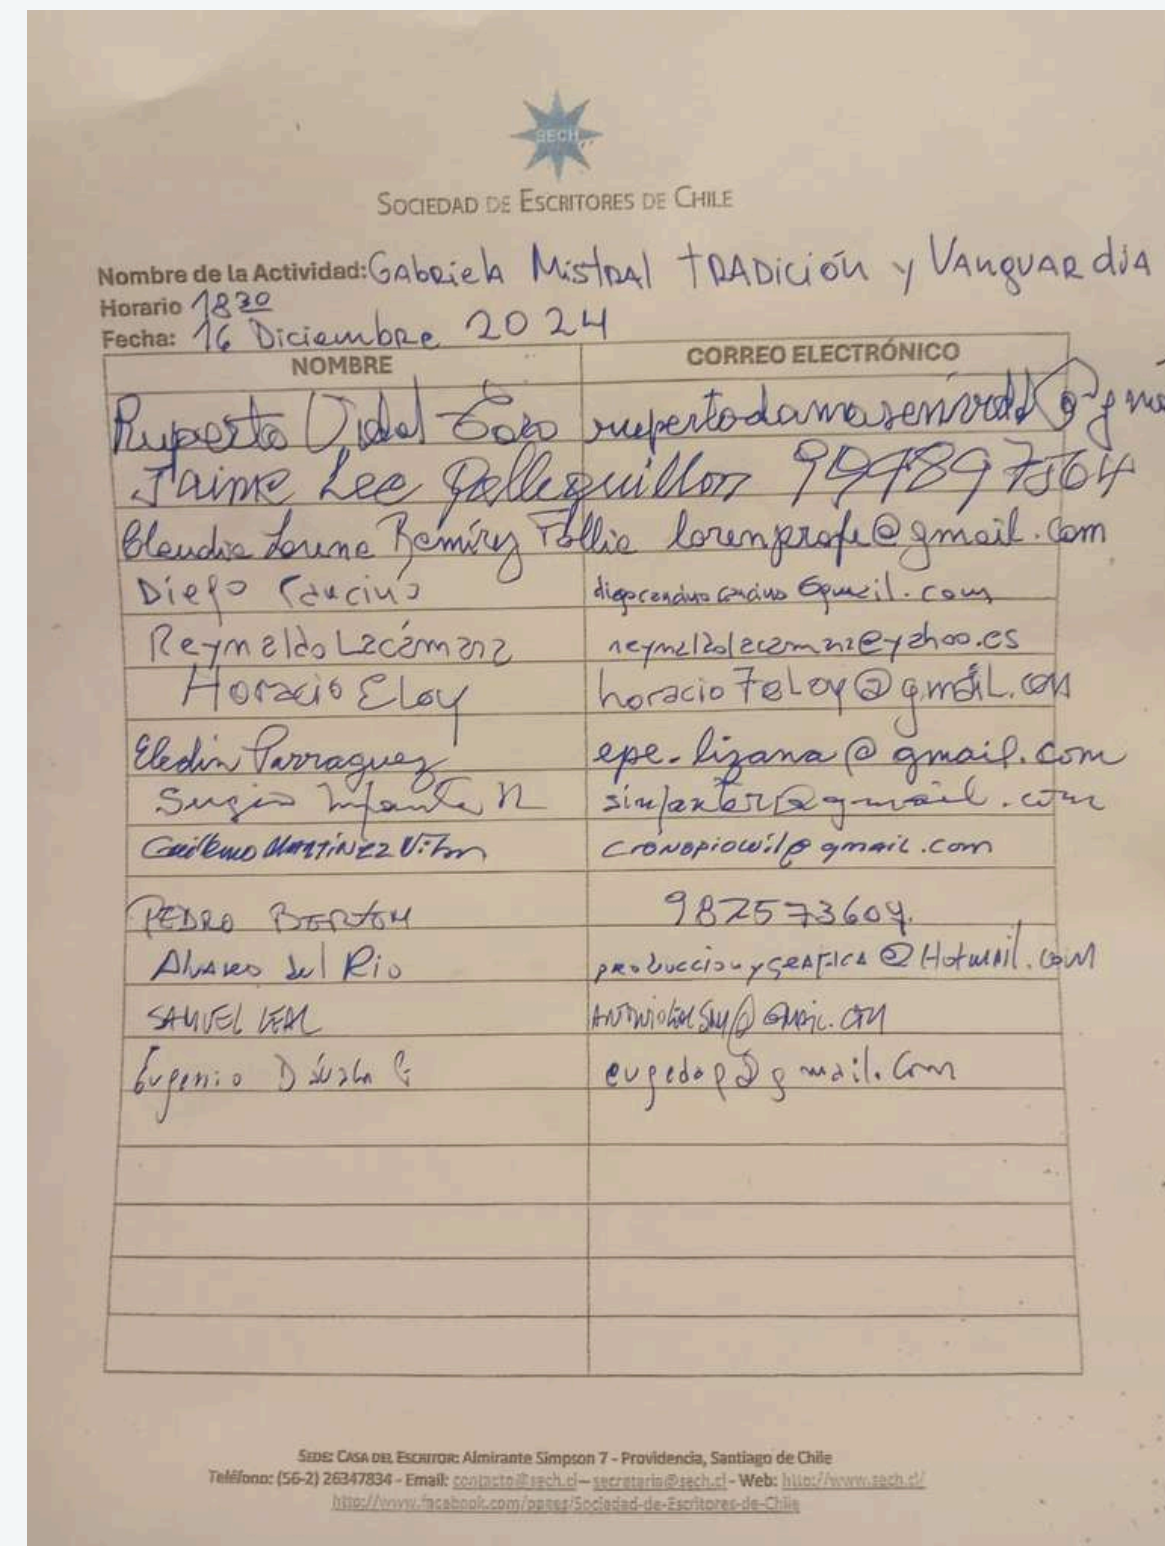 SECH
SOCIEDAD DE ESCRITORES DE CHILE
Nombre de la Actividad: GAbRiela MistRAl TRADición y VAnguARdiA
Horario 18 30
Fecha: 16 DiciembRe 2024
NOMBRE CORREO ELECTRÓNICO
Ruperto Vidal
Jaime Lee 999897564
Claudia Lorena Ramírez lorenprofe@gmail.com
Diego Cancino
Reynaldo Lacámara reynaldolacamara@yahoo.es
Horacio Eloy horacio7eloy@gmail.com
Eledín Parraguez epe-lizana@gmail.com
Sergio Infante R
Guillermo MARTÍNEZ cronopiowil@gmail.com
PEDRO 982573604.
Alvaro del Rio produccionygrafica@Hotmail.com
SAMUEL LEAL
Eugenio Dávalos G
SEDE: CASA DEL ESCRITOR: Almirante Simpson 7 - Providencia, Santiago de Chile
Teléfono: (56-2) 26347834 - Email: contacto@sech.cl – secretaria@sech.cl - Web: http://www.sech.cl/
http://www.facebook.com/pages/Sociedad-de-Escritores-de-Chile